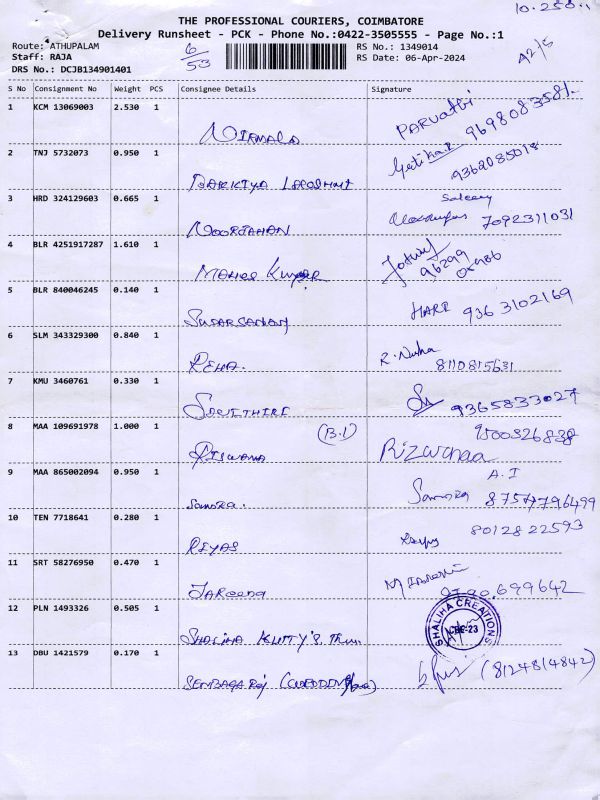 THE PROFESSIONAL COURIERS, COIMBATORE
Delivery Runsheet - PCK - Phone No.:0422-3505555 - Page No.:1
Route: ATHUPALAM 6/53 RS No.: 1349014 A2/5
Staff: RAJA RS Date: 06-Apr-2024
DRS No.: DCJB134901401
S No Consignment No Weight PCS Consignee Details Signature
1 KCM 13069003 2.530 1 NIRMALA PARVATHI
2 TNJ 5732073 0.950 1 9362085018
3 HRD 324129603 0.665 1 NOORJAHAN 7092311031
4 BLR 4251917287 1.610 1 96299
5 BLR 840046245 0.140 1 SUDARSANAM HARI 9363102169
6 SLM 343329300 0.840 1 REHA. R. Nisha 8110815631
7 KMU 3460761 0.330 1 9365833027
8 MAA 109691978 1.000 1 RISWANA (B.1) Rizwanaa
9 MAA 865002094 0.950 1 A.I 8754796499
10 TEN 7718641 0.280 1 REYAS 8012822593
11 SRT 58276950 0.470 1 9790699642
12 PLN 1493326 0.505 1 SHALIHA KUTTY'S SHALIHA CREATIONS CBE-23
13 DBU 1421579 0.170 1 SEMBAGARAJ (8124814842)